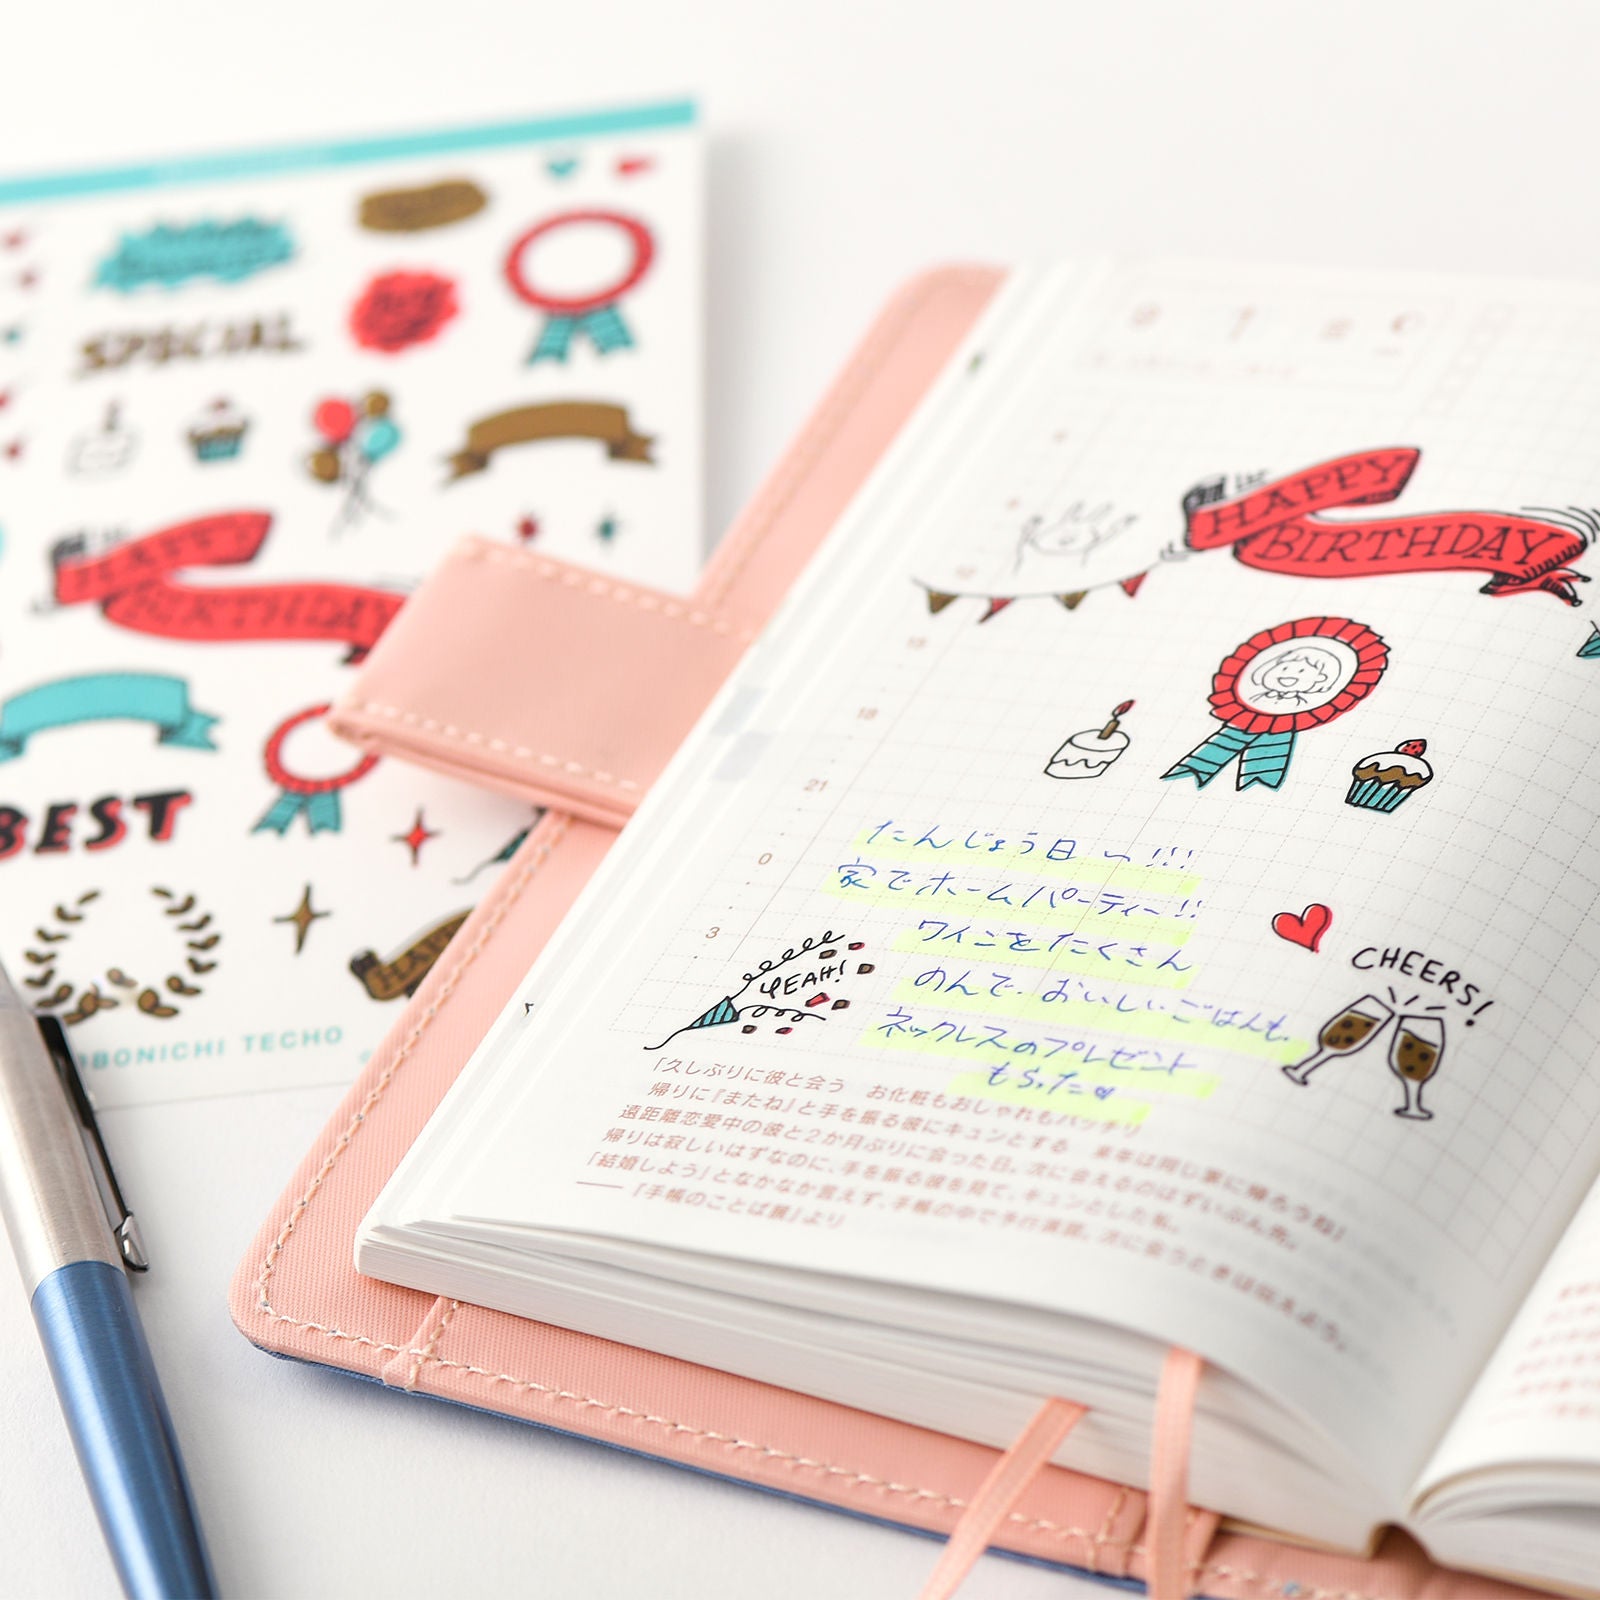 SPECIAL
HAPPY
BIRTHDAY
BEST
HAPPY
BONICHI TECHO
HAPPY
BIRTHDAY
12
15
18
21
0
3
たんじょう日〜!!!
家でホームパーティー!!
ワインをたくさん
のんで、おいしいごはんも。
ネックレスのプレゼント
もらった♡
YEAH!
CHEERS!
「久しぶりに彼と会う　お化粧もおしゃれもバッチリ
帰りに『またね』と手を振る彼にキュンとする　来年は同じ家に帰ろうね」
遠距離恋愛中の彼と2か月ぶりに会った日。次に会えるのはずいぶん先。
帰りは寂しいはずなのに、手を振る彼を見て、キュンとした私。
「結婚しよう」となかなか言えず、手帳の中で予行演習。次に会うときは伝えよう。
――『手帳のことば展』より